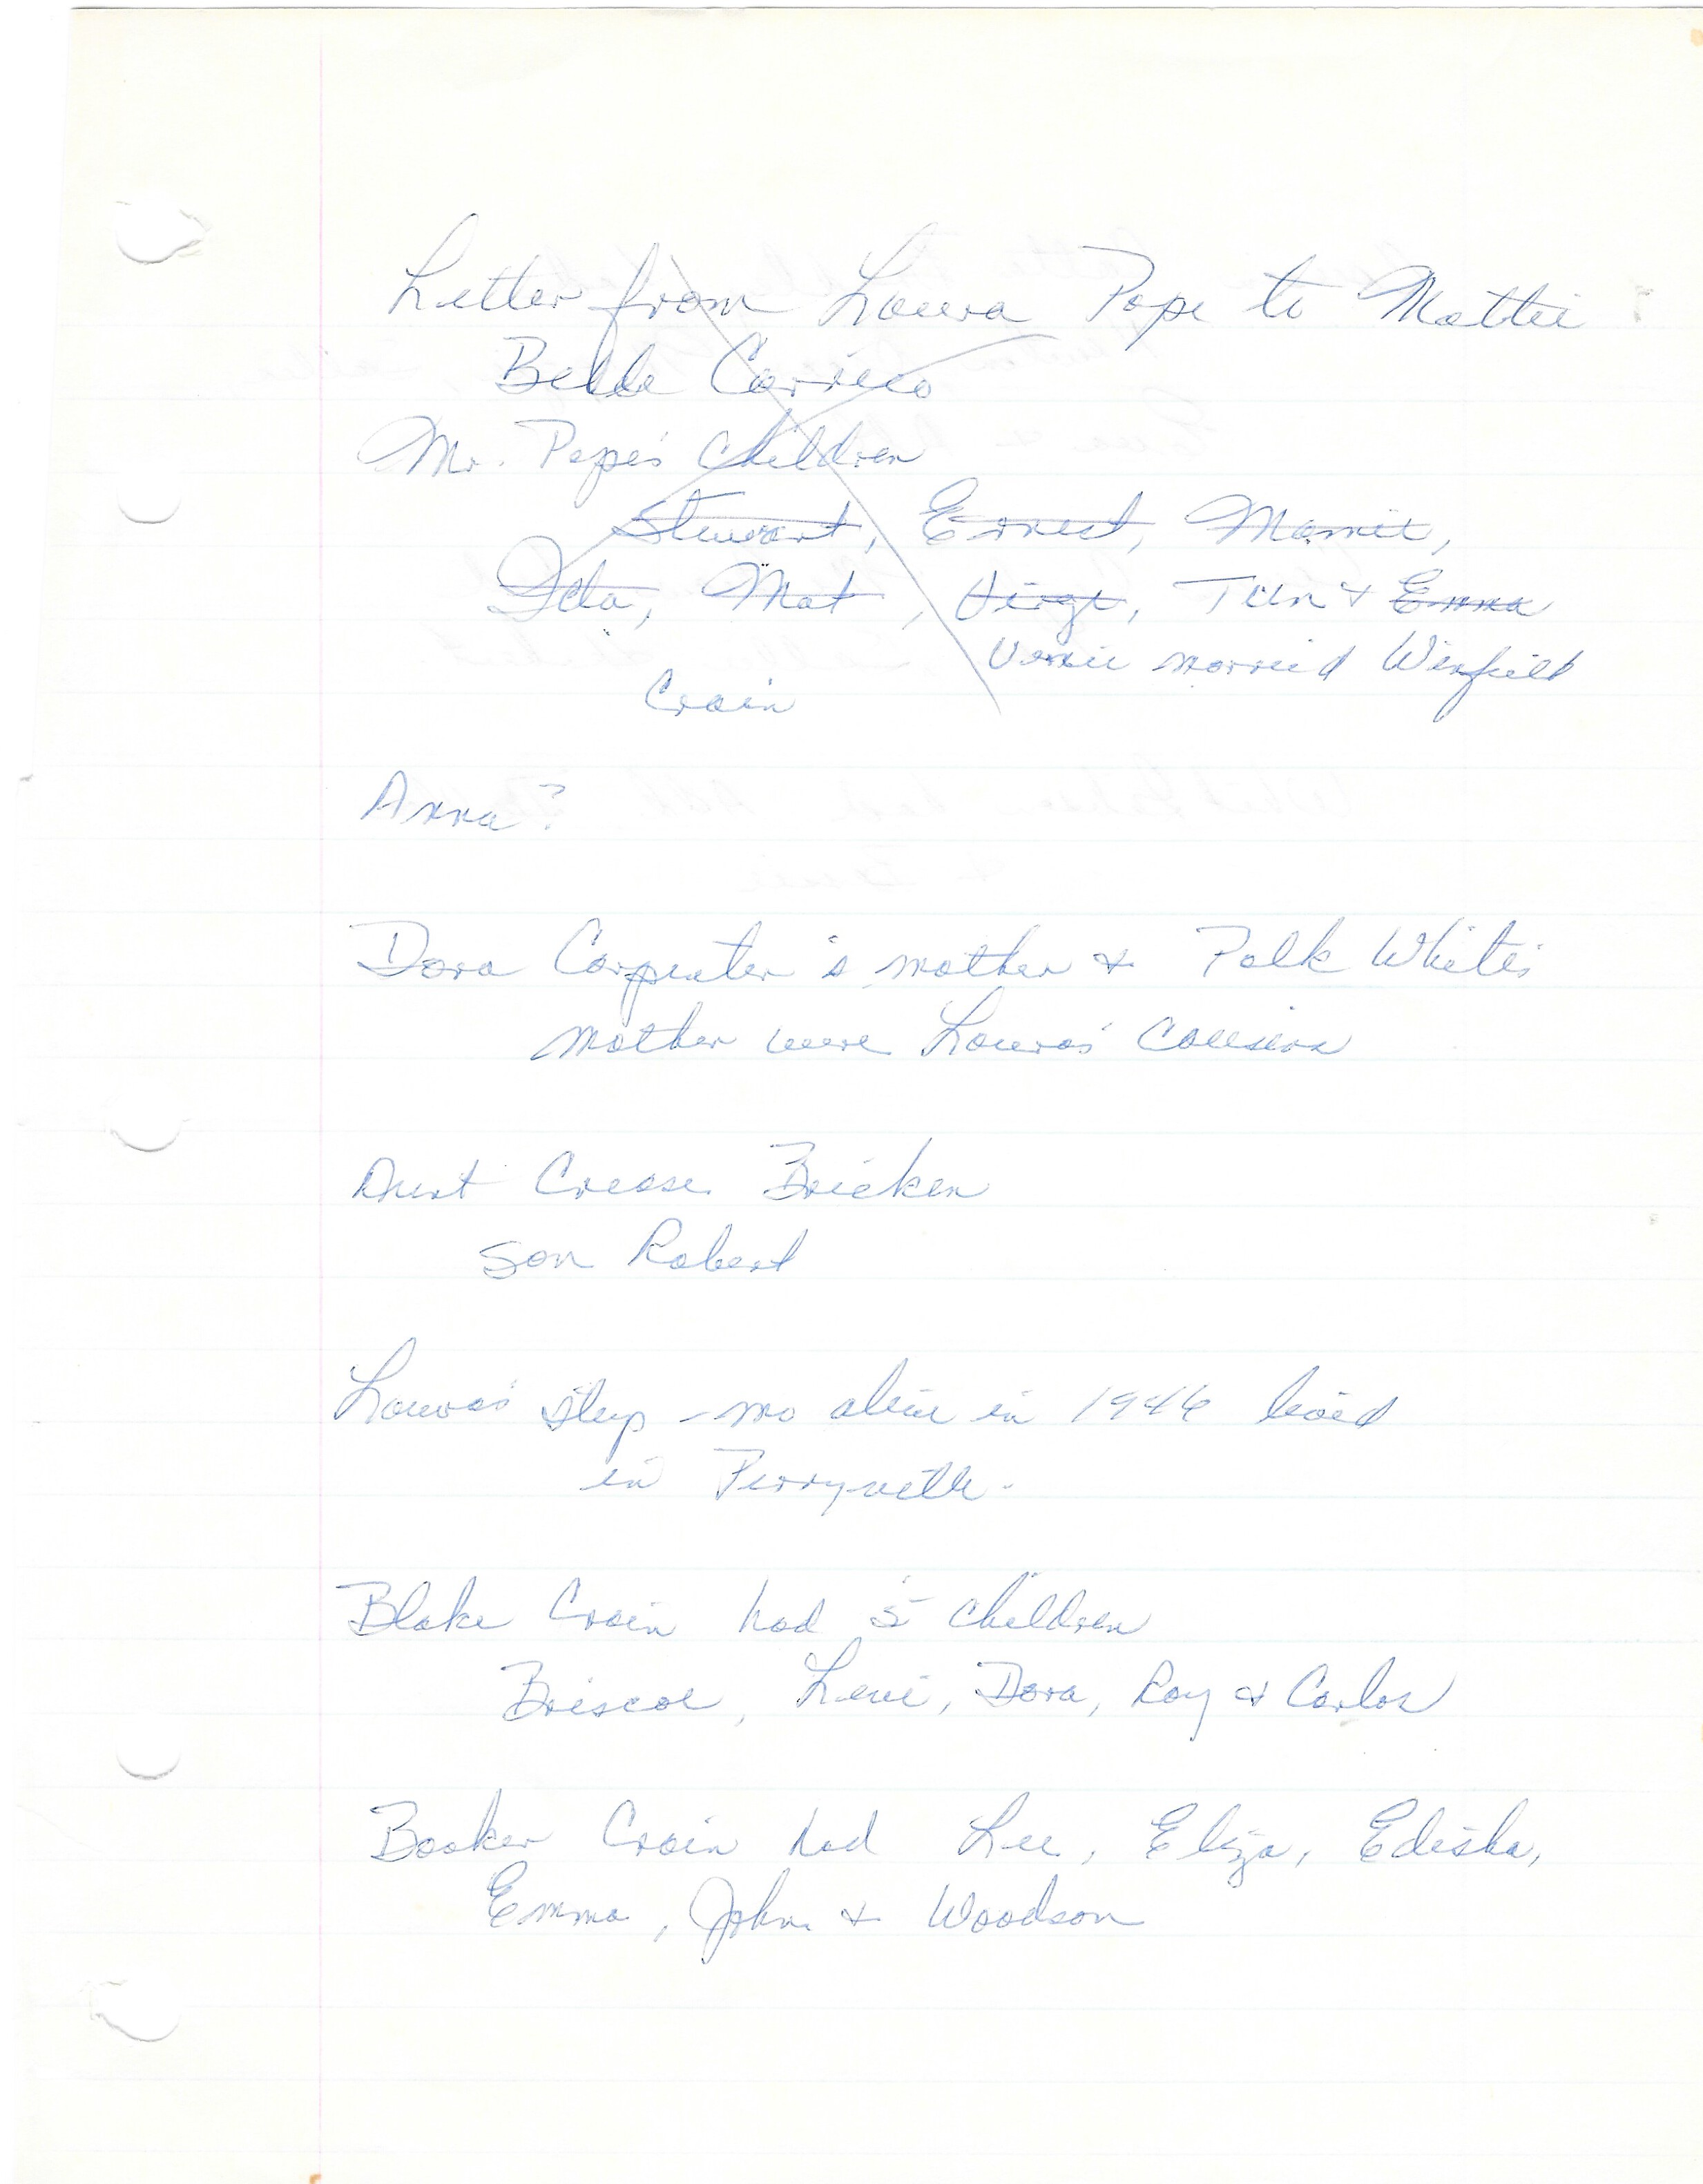 Letter from Loura Pope to Mattie
Belle Carrico
Mr. Pope's Children
Stewart, Ernest, Mamie,
Ida, Mat, Virge, Tim & Emma
Vernie married Winfield
Crain
Anna?
Dora Carpenter's mother & Polk White's
mother were Loura's Cousins
Aunt Crease Bricken
son Robert
Loura's step-mo alive in 1946 lived
in Perryville.
Blake Crain had 5 children
Briscoe, Levi, Dora, Roy & Carlos
Booker Crain had Lee, Eliza, Edisha,
Emma, John & Woodson